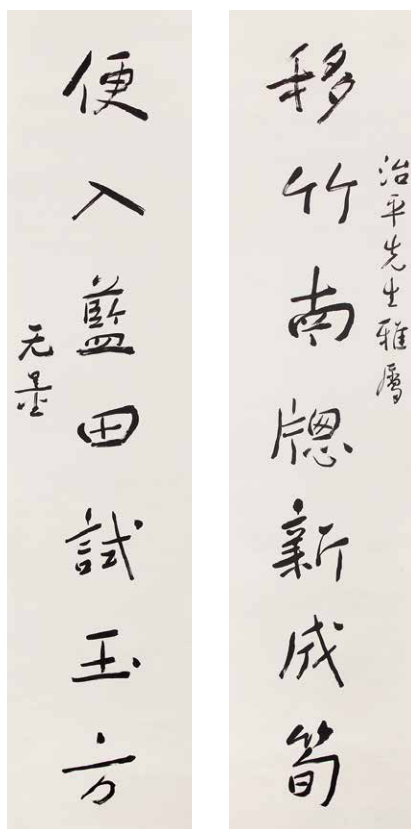 治平先生雅屬
移竹南牕新成筍
便入藍田試玉方
无量